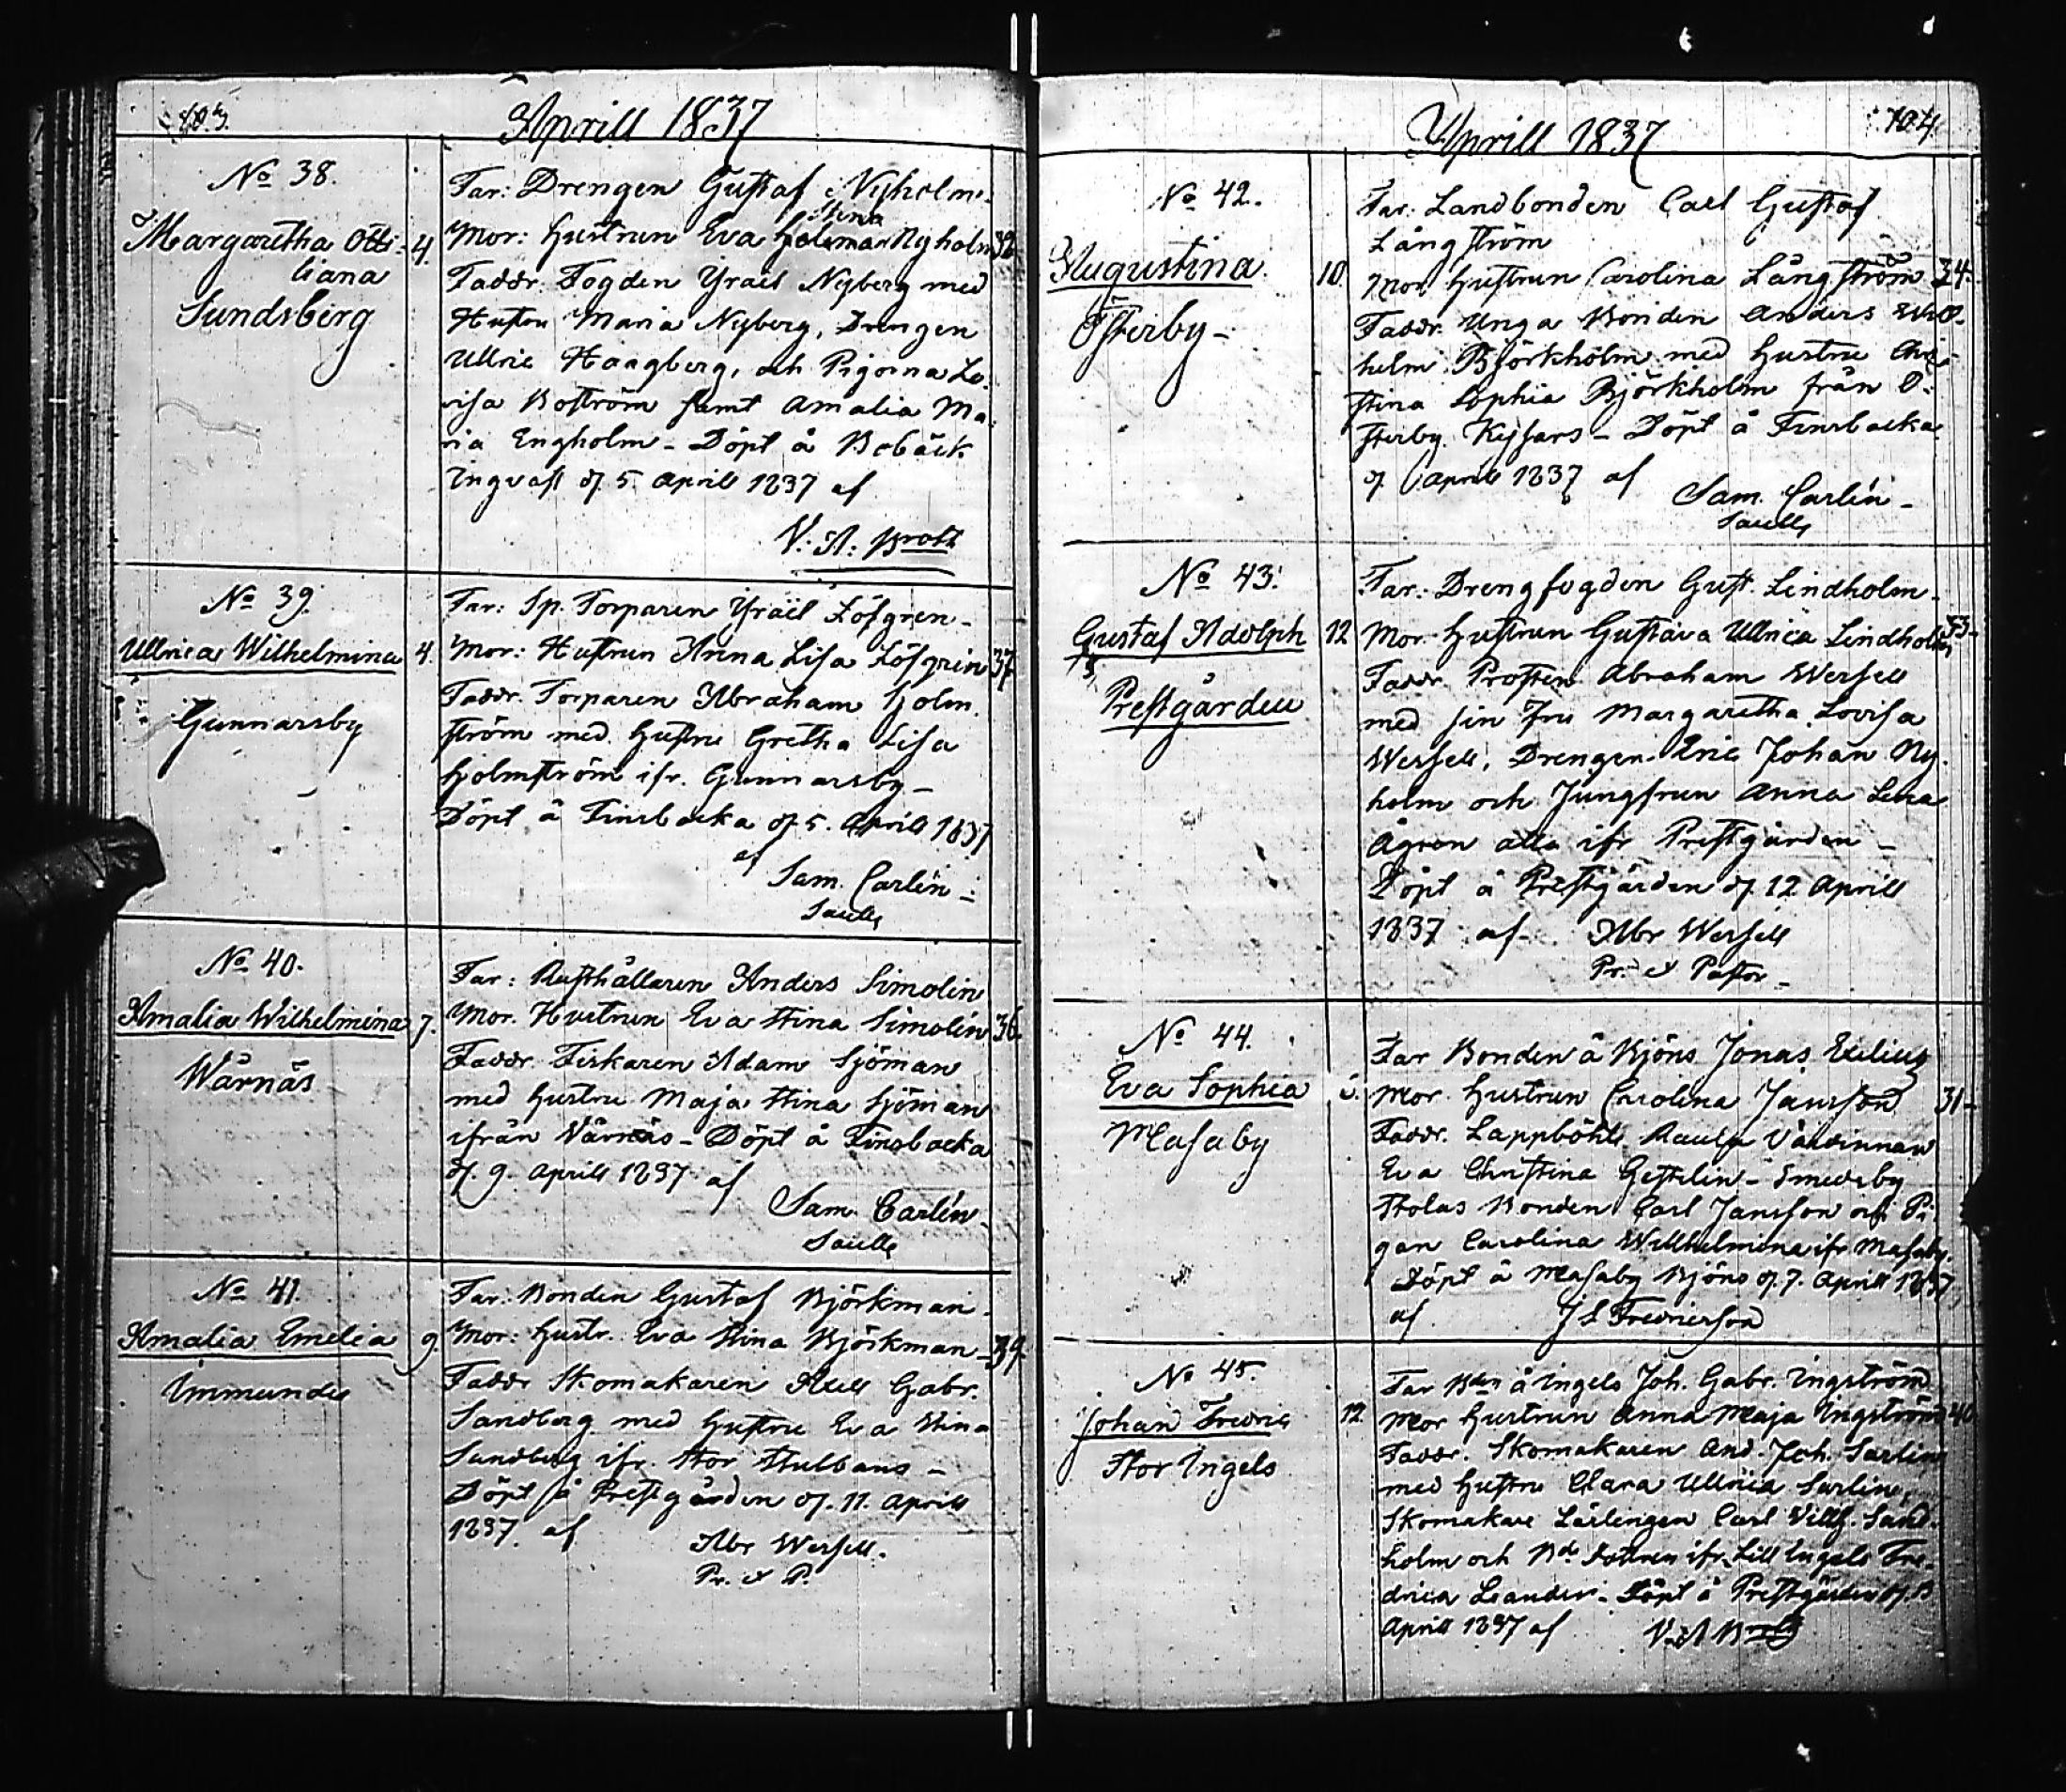 103.
Aprill 1837
No 38.
Margaretha Otti-
liana
Sundsberg
4.
Far: Drengen Gustaf Nyholm-
Stina
Mor: Hustrun Eva Nyholm 32
Faddr. Fogden Israel Nyberg med
Hustru Maria Nyberg, Drengen
Ullric Haagberg, och Pigorna Lo-
visa Boström samt Amalia Ma-
ria Engholm - Döpt å Bobäck
Ingvast d. 5 April 1837 af
V: A: Brotz
No 39.
Ullrica Wilhelmina
4.
Gunnarsby
Far: Sp. Torparen Israel Löfgren-
Mor: Hustrun Anna Lisa Löfgren 37
Faddr. Torparen Abraham Hjolm-
ström med Hustru Gretha Lisa
Hjolmström ifr. Gunnarsby-
Döpt å Finsbacka d. 5. Aprill 1837
af Sam. Carlén-
No 40.
Amalia Wilhelmina
7.
Wårnäs
Far: Rusthållaren Anders Simolin
Mor. Hustrun Eva Stina Simolin 36
Faddr. Fiskaren Adam Sjöman
med Hustru Maja Stina Sjöman
ifrån Vårnäs - Döpt å Finsbacka
d. 9. Aprill 1837 af
Sam. Carlén-
No 41.
Amalia Emelia
9.
Far: Bonden Gustaf Björkman-
Mor: Hustr. Eva Stina Björkman 39
Faddr Skomakaren Gabr.
Sandberg med Hustru Eva Stina
Sandberg ifr. Stor Stubbans-
Döpt å Prestgården d. 11. Aprill
1837. af
Abr Wersell.
Pr. et P.
104
Aprill 1837
No 42.
Augustina.
10.
Österby-
Far: Landbonden Carl Gustaf
Långström
Mor. Hustrun Carolina Långström 34-
Faddr. Unga Bonden Anders Wil-
helm Björkholm med Hustru Chri-
stina Sophia Björkholm från Ö-
sterby Kejsars - Döpt å Finsbacka
d. Aprill 1837 af
Sam. Carlén-
No 43.
Gustaf Adolph
12
Prestgården
Far: Drengfogden Gust. Lindholm-
Mor. Hustrun Gustava Ullrica Lindholm 33-
Faddr Prosten Abraham Wersell
med sin Fru Margaretha Lovisa
Wersell, Drengen Eric Johan Ny-
holm och Jungfrun Anna Lena
Ågren alla ifr Prestgården-
Döpt å Prestgården d. 12 Aprill
1837 af Abr Wersell
Pr. et Pastor-
No 44.
Eva Sophia
Masaby
Far Bonden å Björs Jonas
Mor. Hustrun Carolina Jansson 31-
Faddr. Lappböhle Värdinnan
Eva Christina Gestelin - Smedsby
Stolas Bonden Carl Jansson och Pi-
gan Carolina Willhelmina ifr Masaby.
Döpt å Masaby Björs d. 7. Aprill 1837
af J S Fredricson
No 45.
Johan Fredric
12.
Stor Ingels
Far Bdn å Ingels Joh. Gabr. Ingström
Mor Hustrun Anna Maja Ingström 40
Faddr. Skomakaren And. Joh. Sarlin
med Hustru Clara Ullrica Sarlin,
Skomakare Lärlingen Carl Villh. Sand-
holm och Bde Dottren ifr. Lill Ingels Fre-
drica Leander - Döpt å Prestgården d. 13
Aprill 1837 af V. A Brotz